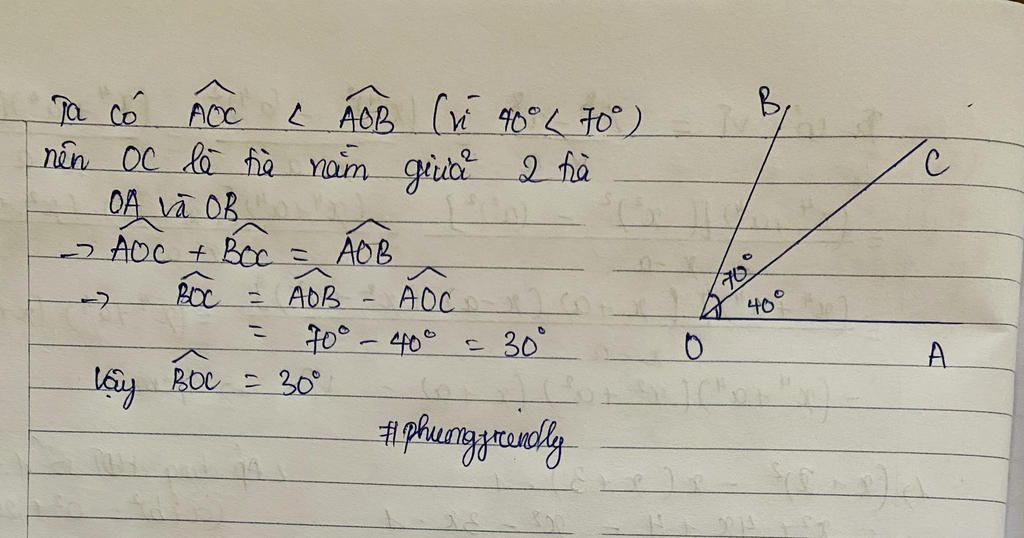 Ta có AOC < AOB (vì 40° < 70°)
nên OC là tia nằm giữa 2 tia
OA và OB
→ AOC + BOC = AOB
→ BOC = AOB - AOC
= 70° - 40° = 30°
Vậy BOC = 30°
#phuongfriendly
B
C
70°
40°
O
A